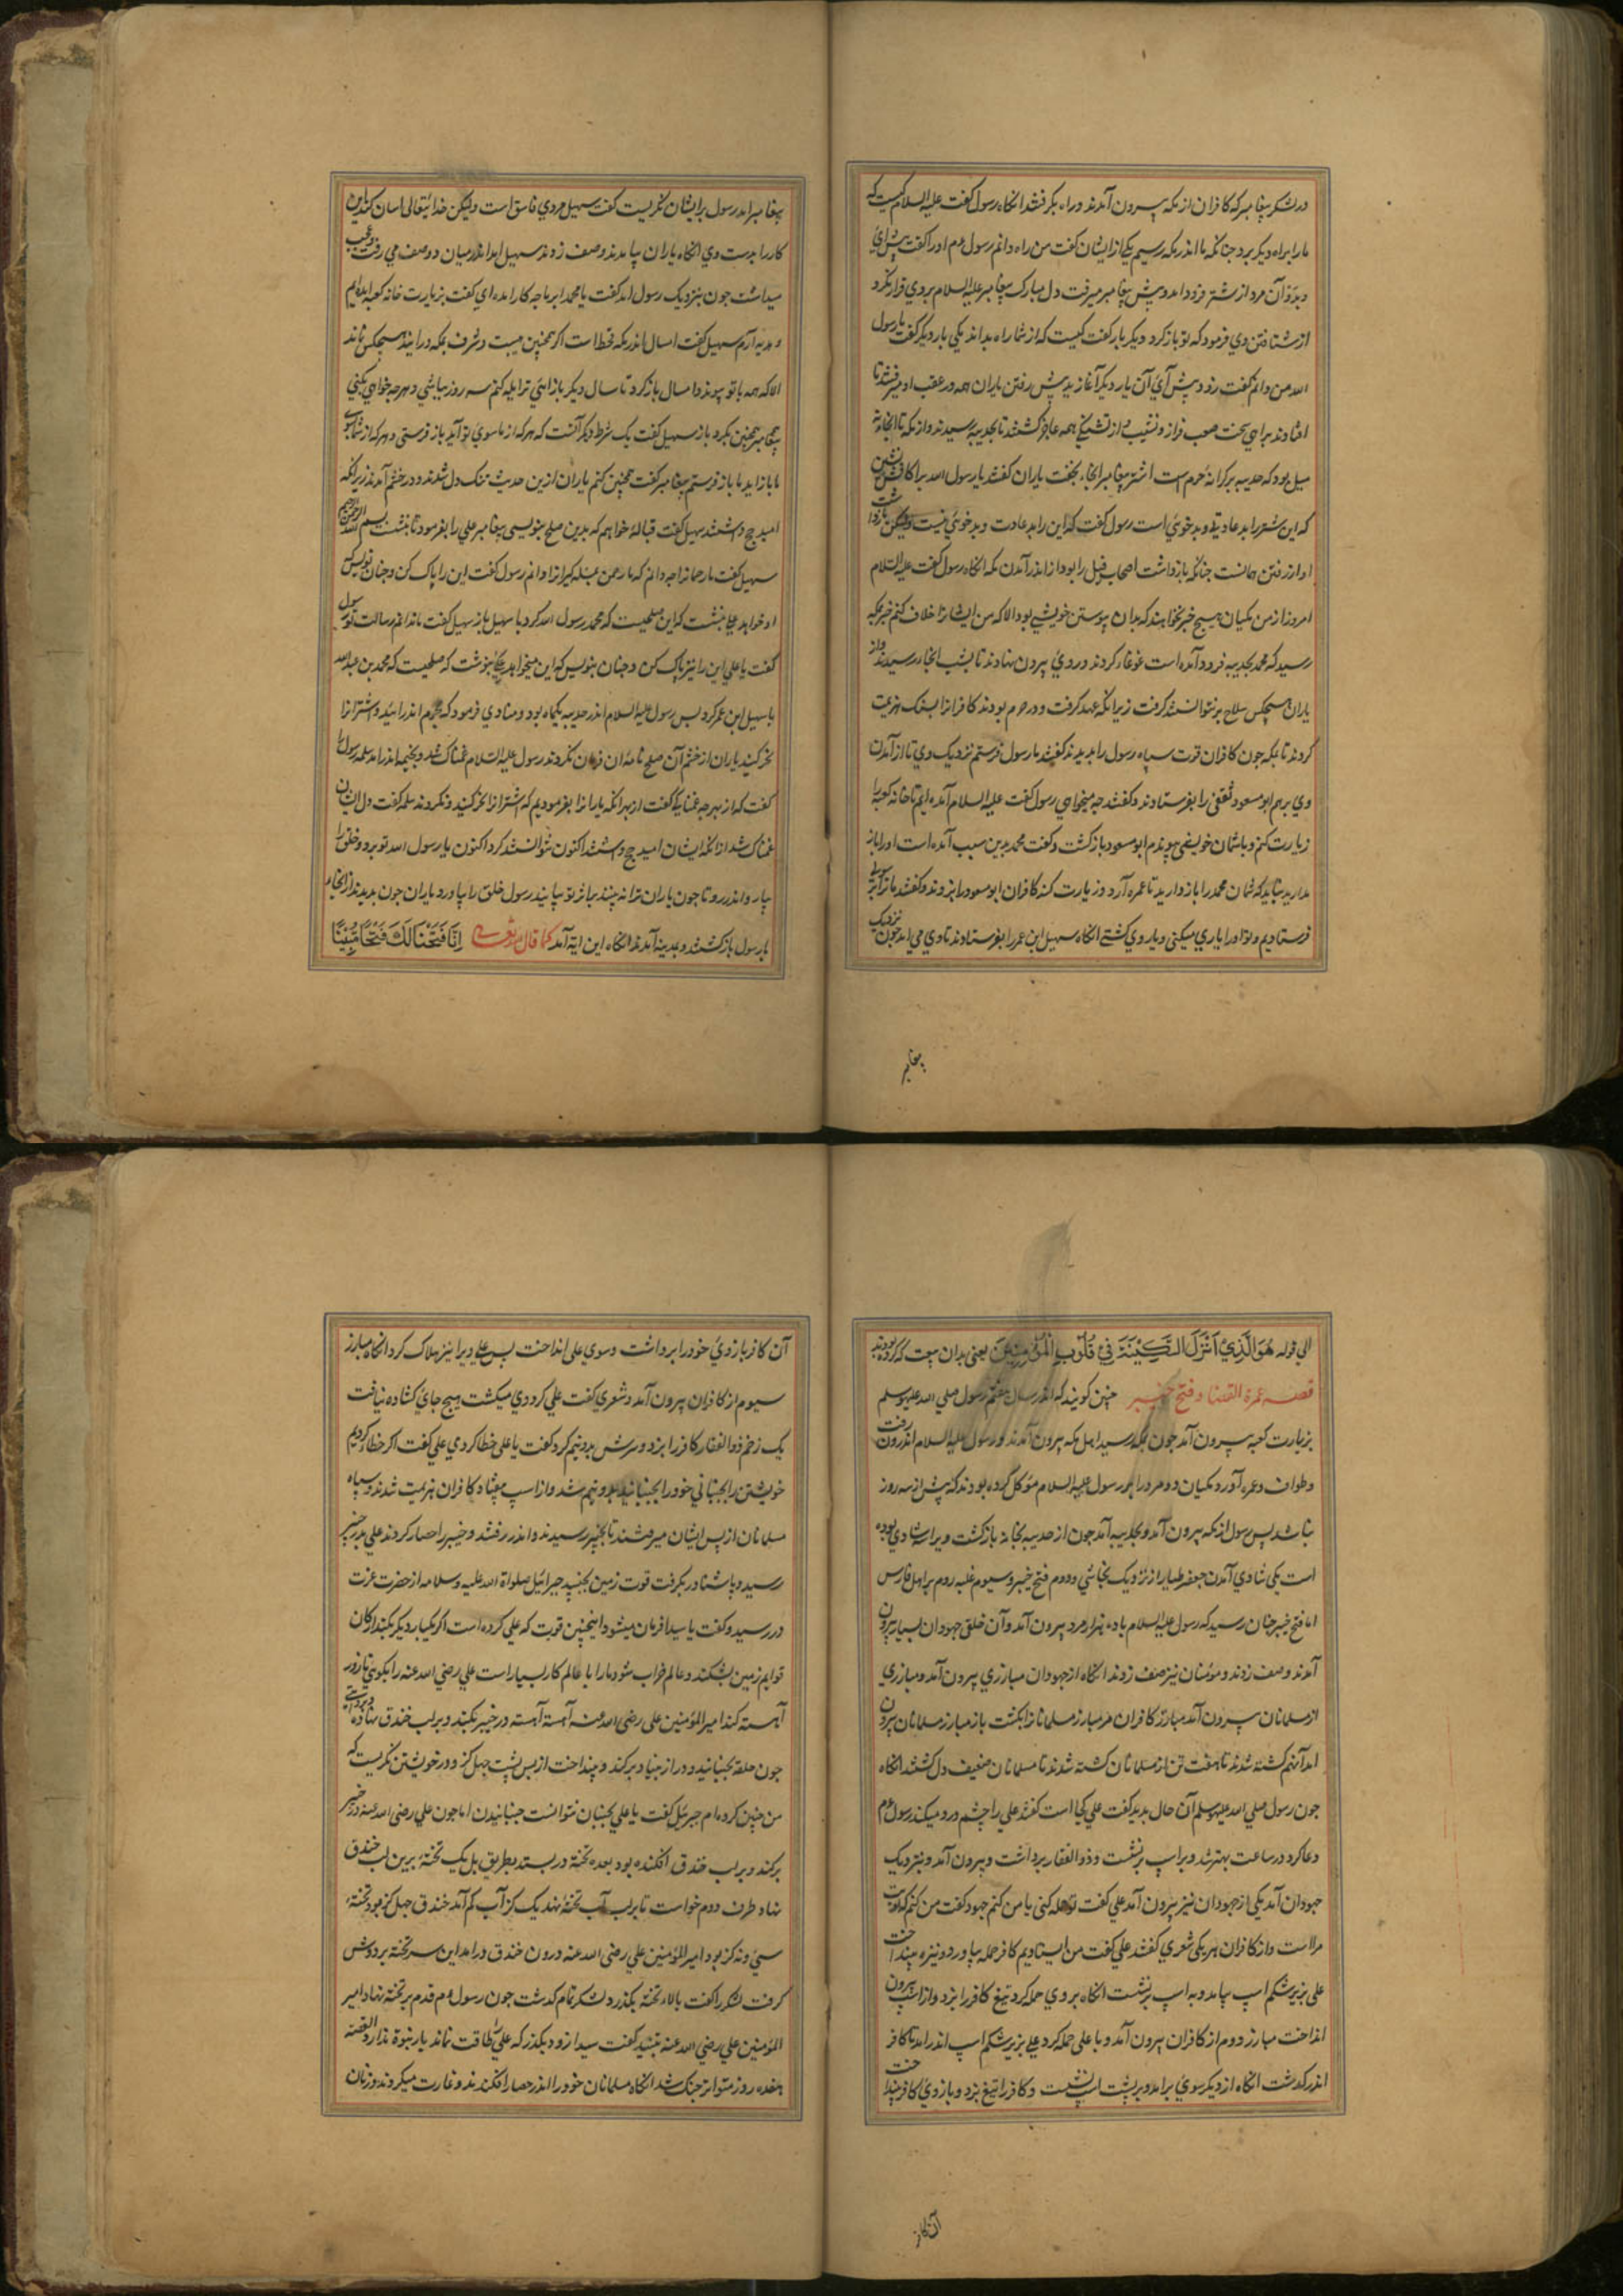 در لشکر پیغامبر که کافران از مکه بیرون آمدند و راه بگرفتند انکاه رسول گفت علیه السلام کیست که
ما را براه دیگر برد چنانکه ما اندر مکه رسیم یکی از ایشان گفت من راه دانم رسول عم او را گفت پیش آی
و بدو آن مرد از شتر فرود امد و پیش پیغامبر میرفت دل مبارک پیغامبر علیه السلام بر وی قرار نکرد
از شتافتن وی فرمود که تو باز کرد و دیگر بار گفت کیست که از شما راه بداند یکی بار دیگر گفت یا رسول
الله من دانم گفت رو در پیش آی آن یار دیگر آغازید پیش رفتن یاران همه در عقب او میرفتند تا
افتادند براهی سخت صعب فراز و نشیب و از تشنگی همه عاجز کشتند تا بحدیبیه رسیدند و از مکه تا انجا نه
میل بود که حدیبیه بر کرانهٔ حرم است اشتر پیغامبر انجا بخفت یاران گفتند یا رسول الله
که این شتر را بد عادتی و بد خوئی است رسول گفت که این را بد عادت و بد خوئی نیست ولیکن باز داشت
او از رفتن همانست چنانکه باز داشت اصحاب فیل را بودا از اندر آمدن مکه انکاه رسول گفت علیه السلام
امروز از من مکیان هیچ خبر نخواهند که بدان پیوستن خویشی بود الا که من ایشانرا خلاف نکنم خبر بمکه
رسید که محمد بحدیبیه فرود آمده است غوغا کردند و روی بیرون نهادند تا بشب انجا در رسیدند و از
یاران هیچکس سلاح بر نتوانستند کرفت زیرانکه عهد کرفت و در حرم بودند کافرانرا بسنک هزیمت
کردند تا بمکه جون کافران قوت سپاه رسول را بدیدند گفتند یا رسول فرستم نزدیک وی تا از آمدن
وی برهم ابو مسعود ثقفی را بفرستادند و گفتند چه میخواهی رسول گفت علیه السلام آمده ایم تا خانه کعبه را
زیارت کنم و با شمان خویشی پیوندم ابو مسعود باز کشت و گفت محمد بدین سبب آمده است او را باز
مدارید نباید که شمان محمد را باز دارید تا عمره آرد و زیارت کند کافران ابو مسعود را بزدند و گفتند ما ترا برسولی
فرستادیم و تو او را یاری میکنی و یار وی کشتی انکاه سهیل ابن عمر را بفرستادند تا وی می امد جون نزدیک
پیغامبر
پیغامبر امد رسول بر ایشان نکریست گفت سهیل مردی فاسق است ولیکن خدایتعالی اسان کند این
کار را بدست وی انکاه یاران بیامدند و صف زدند سهیل امد اندر میان دو صف می رفت و عجب
میداشت جون بنزدیک رسول امد گفت یا محمد ایر باچه کار امده ای گفت بزیارت خانه کعبه امده ایم
و هدیه آرم سهیل گفت امسال اندر مکه قحط است اکر همچنین هیبت و شرف بمکه در ائید هیچکس نماند
الا که همه با تو پیوند دا مسال باز کرد تا سال دیگر باز ائی ترا یله کنم سه روز بباشی و هر چه خواهی بکنی
پیغامبر همچنین بکرد باز سهیل گفت یک شرط دیگر آنست که هر که از ما سوی تو آید باز فرستی و هر که از شما سوی
ما باز اید ما باز فرستم پیغامبر گفت همچنین کنم یاران ازین حدیث تنک دل شدند و در خشم آمدند زیرانکه
امید حج داشتند سهیل گفت قبالهٔ خواهم که بدین صلح بنویسی پیغامبر علی را بفرمود تا بنشت بسم الله الرحمن الرحیم
سهیل گفت ما رحمانرا چه دانم که ما رحمن عبله کیرانرا دانم رسول گفت این را پاک کن و چنان نویس که
او خواهد علی بنشت که این صلحیست که محمد رسول الله کرد با سهیل باز سهیل گفت ما ندانم رسالت تو رسول
گفت یا علی این را نیز پاک کن و جنان بنویس که این میخواهد علی بنوشت که صلحیست که محمد بن عبدالله
با سهیل ابن عمر کرد پس رسول علیه السلام اندر حدیبیه یکماه بود و منادی فرمود که بحرم اندر ائید و اشترانرا
نحر کنید یاران از خشم آن صلح نامه ان فرمان نکردند رسول علیه السلام غمناک شد و بخیمه اندر امد سلمه رسول را
گفت که از بهر چه غمناکی گفت از بهر انکه یارانرا بفرمودیم که اشترانرا نحر کنید و نکردند سلمه گفت دل ایشان
غمناک شد از انکه ایشان امید حج داشتند اکنون نتوانستند کرد اکنون یا رسول الله تو برو و خلق را
بیار و اندر رو تا جون یاران ترا نه بینند بر اثر تو بیایند رسول خلق را بیاورد یاران جون بدیدند از انجا
با رسول باز کشتند و بمدینه آمدند انکاه این ایة آمد کما قال الله تعالی اِنَّا فَتَحْنَا لَكَ فَتْحًا مُّبِینًا
الی قوله هُوَ الَّذِيْ اَنْزَلَ السَّكِيْنَةَ فِيْ قُلُوْبِ الْمُؤْمِنِيْنَ یعنی بدان بیعت که کرده بودند
قصهٔ عمرة القضا و فتح خیبر چنین کویند که اندر سال هفتم رسول صلی الله علیه وسلم
بزیارت کعبه بیرون آمد جون بمکه رسید اهل مکه بیرون آمدند و رسول علیه السلام اندرون رفت
و طواف و عمره آورد و مکیان دو مرد را بر رسول علیه السلام موکل کرده بودند که بیش از سه روز
نباشد پس رسول از مکه بیرون آمد و بحدیبیه آمد جون از حدیبیه بخانه باز کشت ویرا سه شادی بوده
است یکی شادی آمدن جعفر طیار از نزدیک نجاشی و دوم فتح خیبر و سیوم غلبه روم بر اهل فارس
اما فتح خیبر چنان رسید که رسول علیه السلام با ده هزار مرد بیرون آمد و آن خلق جهودان بسیار بیرون
آمدند و صف زدند و مؤمنان نیز صف زدند انکاه از جهودان مبارزی بیرون آمد و مبارزی
از مسلمانان بیرون آمد مبارز کافران مر مبارز مسلمانانرا بکشت باز مبارز مسلمانان بیرون
امد آنهم کشته شدند تا هفت تن از مسلمانان کشته شدند تا مسلمانان ضعیف دل کشتند انکاه
جون رسول صلی الله علیه وسلم آن حال بدید گفت علی کجا است گفتند علی را چشم درد میکند رسول عم
دعا کرد در ساعت بهتر شد و بر اسپ بر نشست و ذوالفقار برداشت و بیرون آمد و بنزدیک
جهودان آمد یکی از جهودان نیز بیرون آمد علی گفت تو حمله کنی یا من کنم جهود گفت من کنم که نوبت
مراست و از کافران هر یکی شعری گفتند علی گفت من ایستادیم کافر حمله بیاورد و نیزه بینداخت
علی بزیر شکم اسپ بیامد و به اسپ بر نشست انکاه بر وی حمله کرد تیغ کافر را بزد و از اسپ بیرون
انداخت مبارز دوم از کافران بیرون آمد و با علی حمله کرد علی بزیر شکم اسپ اندر امد تا کافر
اندر کذشت انکاه از دیگر سوی برامد و بر پشت اسپ نشست و کافر را تیغ بزد و بازوی کافر بینداخت
آن کافر
آن کافر بازوی خود را برداشت و سوی علی انداخت پس علی ویرا نیز هلاک کرد انکاه مبارز
سیوم از کافران بیرون آمد و شعری گفت علی کرد وی میکشت هیچ جای کشاده نیافت
یک زخم ذوالفقار کافر را بزد و سرش بدو نیم کرد گفت یا علی خطا کردی علی گفت اکر خطا کردیم
خویشتن را بجنبانی خود را بجنبانید بدو نیم شد و از اسپ بیفتاد کافران هزیمت شدند و سپاه
مسلمانان از پس ایشان میرفتند تا بخیبر رسیدند و اندر رفتند و خیبر را حصار کردند علی بدر خیبر
رسید و پاشنا در بکرفت قوت زمین بجنبید جبرائیل صلواة الله علیه و سلامه از حضرت عزت
در رسید و گفت یا سید فرمان میشود اینچنین قوت که علی کرده است اکر یکبار دیگر بکند ارکان
قوایم زمین بشکند و عالم خراب شود ما را با عالم کار بسیار است علی رضی الله عنه را بکوی تا زور
آهسته کند امیر المؤمنین علی رضی الله عنه آهسته آهسته در خیبر بکند و بر لب خندق نهاد
جون حلقه بجنبانید و در از بنیاد برکند و بینداخت از پس پشت چهل کز و در خویشتن نکریست که
من چنین کرده ام جبرئیل گفت یا علی بجنبان نتوانست جنبانیدن اما جون علی رضی الله عنه در خیبر
برکند و بر لب خندق افکنده بود بعده تخته در بسته بطریق پل یک تخته برین لب خندق
نهاد طرف دوم خواست تا بر لب آب تخته نهد یک کز آب کم آمد خندق چهل کز بود تخته
سی و نه کز بود امیر المؤمنین علی رضی الله عنه درون خندق درامد این سر تخته بر دوش
کرفت لشکر را گفت بالاء تخته بکذرد لشکر تمام کذشت جون رسول عم قدم بر تخته نهاد امیر
المؤمنین علی رضی الله عنه بجنبید گفت سید از و دیگذر که علی را طاقت نماند بار نبوة ندارد القصه
هفده روز متواتر جنک شد انکاه مسلمانان خود را اندر حصار افکندند و غارت میکردند و زنان